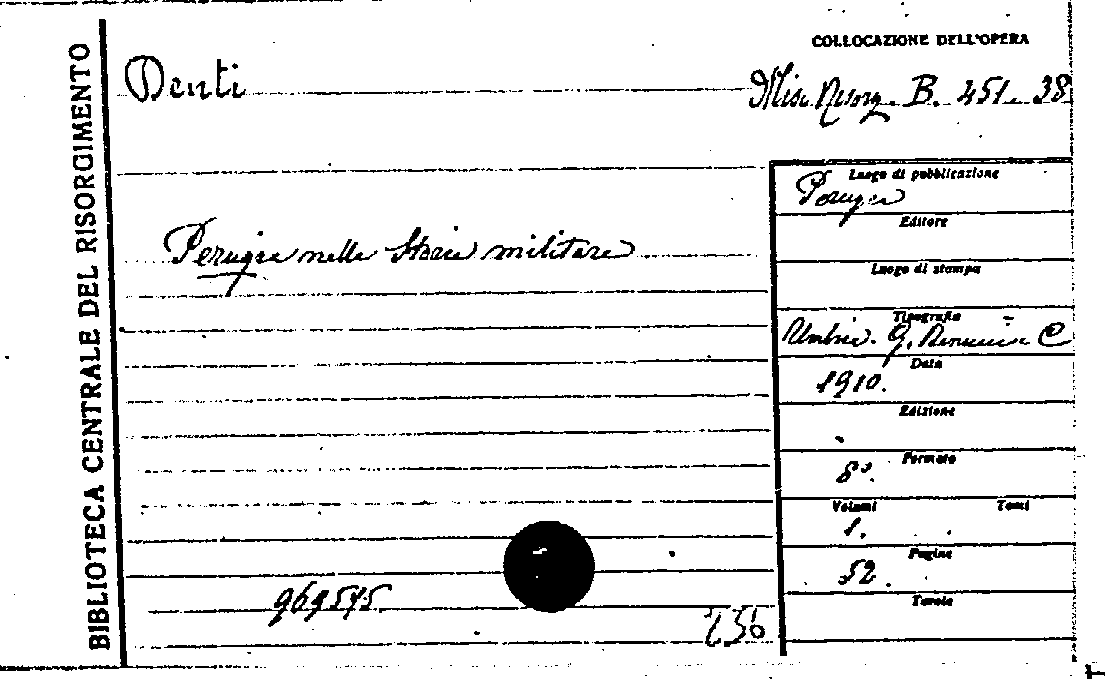 BIBLIOTECA CENTRALE DEL RISORGIMENTO
COLLOCAZIONE DELL'OPERA
Denti
Misc. Risorg. B. 451. 38
Perugia nella Storia militare
Luogo di pubblicazione
Perugia
Editore
Luogo di stampa
Tipografia
Umbria. G. C
Data
1910.
Edizione
Formato
8º.
Volumi Tomi
1.
Pagine
52.
Tavole
969575.
256